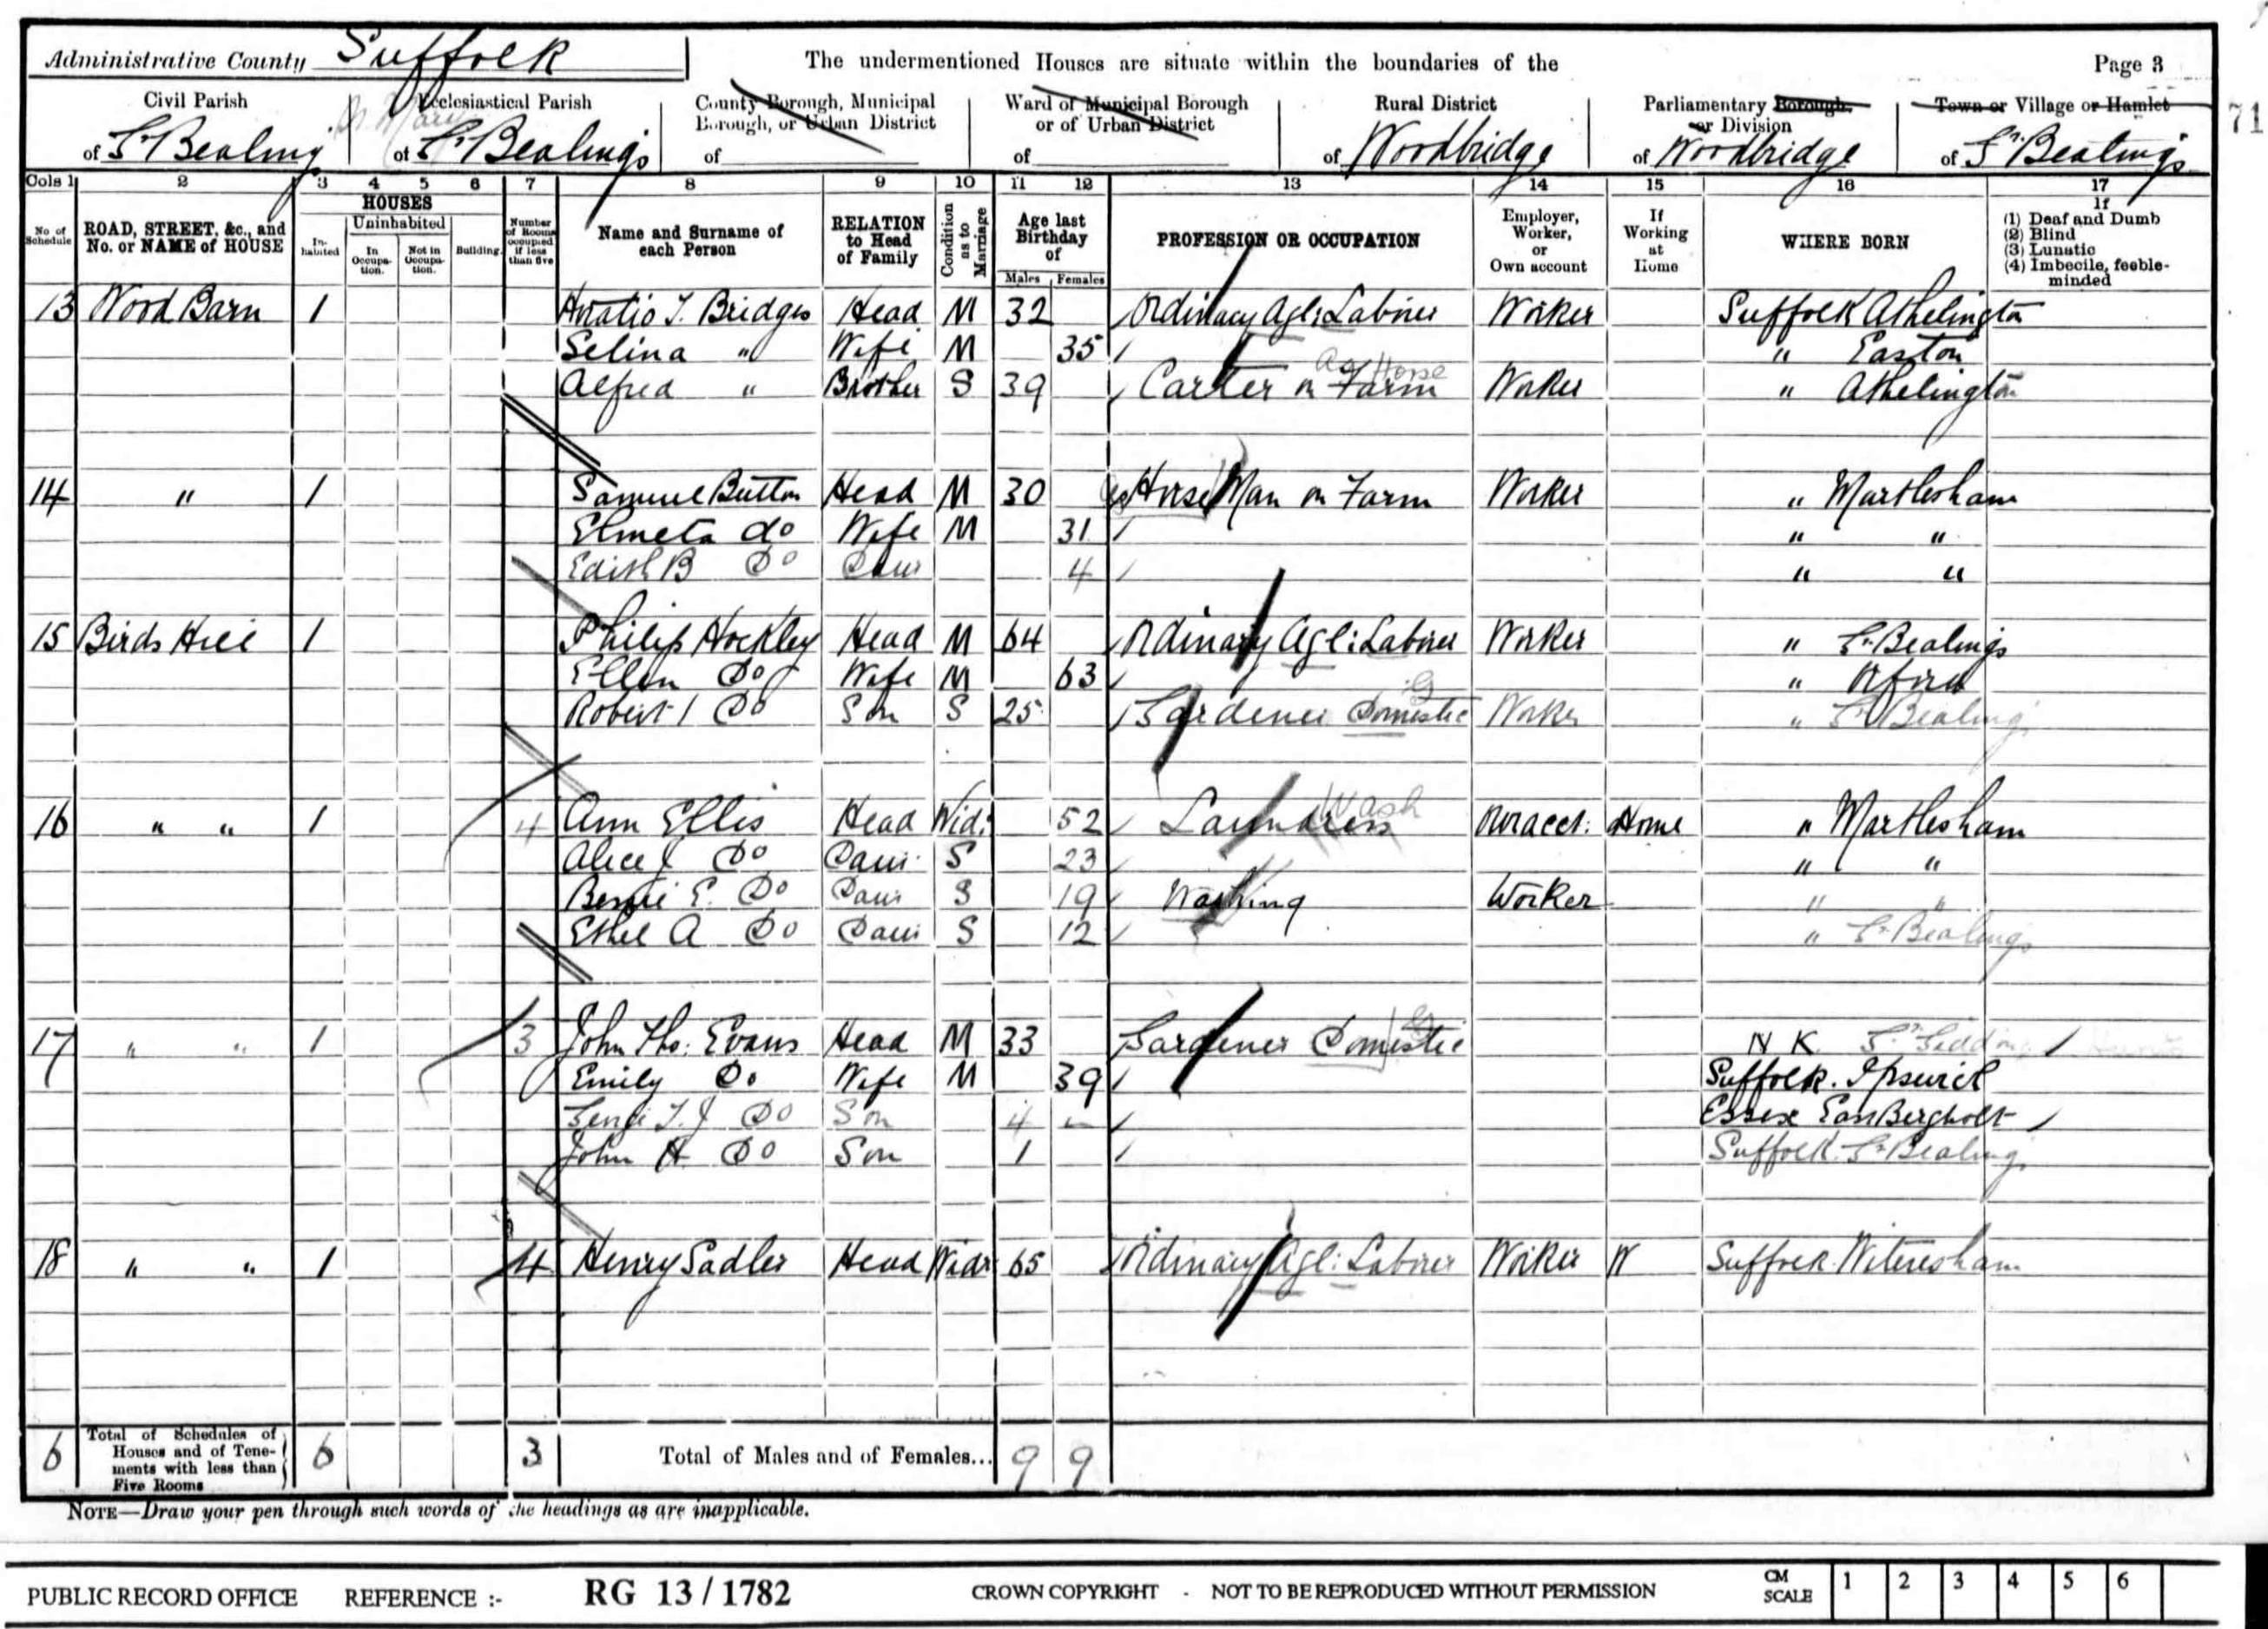 Administrative County Suffolk The undermentioned Houses are situate within the boundaries of the Page 3
Civil Parish Ecclesiastical Parish County Borough, Municipal Borough, or Urban District Ward of Municipal Borough or of Urban District Rural District Parliamentary Borough or Division Town or Village or Hamlet
71
of Gt Bealing of Gt Bealings of of of Woodbridge of Woodbridge of Gt Bealings
Cols 1 2 3 4 5 6 7 8 9 10 11 12 13 14 15 16 17
No of Schedule
ROAD, STREET, &c., and No. or NAME of HOUSE
HOUSES
In-habited
Uninhabited
In Occupa-tion.
Not in Occupa-tion.
Building.
Number of Rooms occupied if less than five
Name and Surname of each Person
RELATION to Head of Family
Condition as to Marriage
Age last Birthday of
Males Females
PROFESSION OR OCCUPATION
Employer, Worker, or Own account
If Working at Home
WHERE BORN
If
(1) Deaf and Dumb
(2) Blind
(3) Lunatic
(4) Imbecile, feeble-minded
13 Wood Barn 1 Horatio T. Bridges Head M 32 Ordinary Agl: Labourer Worker Suffolk Athelington
Selina " Wife M 35 " Easton
Alfred " Brother S 39 Carter on Farm Worker " Athelington
14 " 1 Samuel Button Head M 30 Horse Man on Farm Worker " Martlesham
Elmeta do Wife M 31 " "
Edith B Do Daur 4 " "
15 Birds Hill 1 Philip Hockley Head M 64 Ordinary Agl: Labourer Worker " Gt Bealings
Ellen Do Wife M 63 " Orford
Robert J Do Son S 25 Gardener Domestic Worker " Gt Bealing
16 " " 1 4 Ann Ellis Head Wid: 52 Laundress Wash Own acct: Home " Martlesham
Alice J Do Daur S 23 " "
Bessie E. Do Daur S 19 Washing Worker " "
Ethel A Do Daur S 12 " Gt Bealings
17 " " 1 3 John Tho: Evans Head M 33 Gardener Domestic N K
Emily Do Wife M 39 Suffolk. Ipswich
Do Son 4 Essex East Bergholt
John H Do Son 1 Suffolk. Gt Bealing
18 " " 1 4 Henry Sadler Head Widr 65 Ordinary Agl: Labourer Worker W Suffolk Witnesham
6 Total of Schedules of Houses and of Tene-ments with less than Five Rooms 6 3 Total of Males and of Females... 9 9
NOTE—Draw your pen through such words of the headings as are inapplicable.
PUBLIC RECORD OFFICE REFERENCE :- RG 13 / 1782 CROWN COPYRIGHT - NOT TO BE REPRODUCED WITHOUT PERMISSION CM SCALE 1 2 3 4 5 6